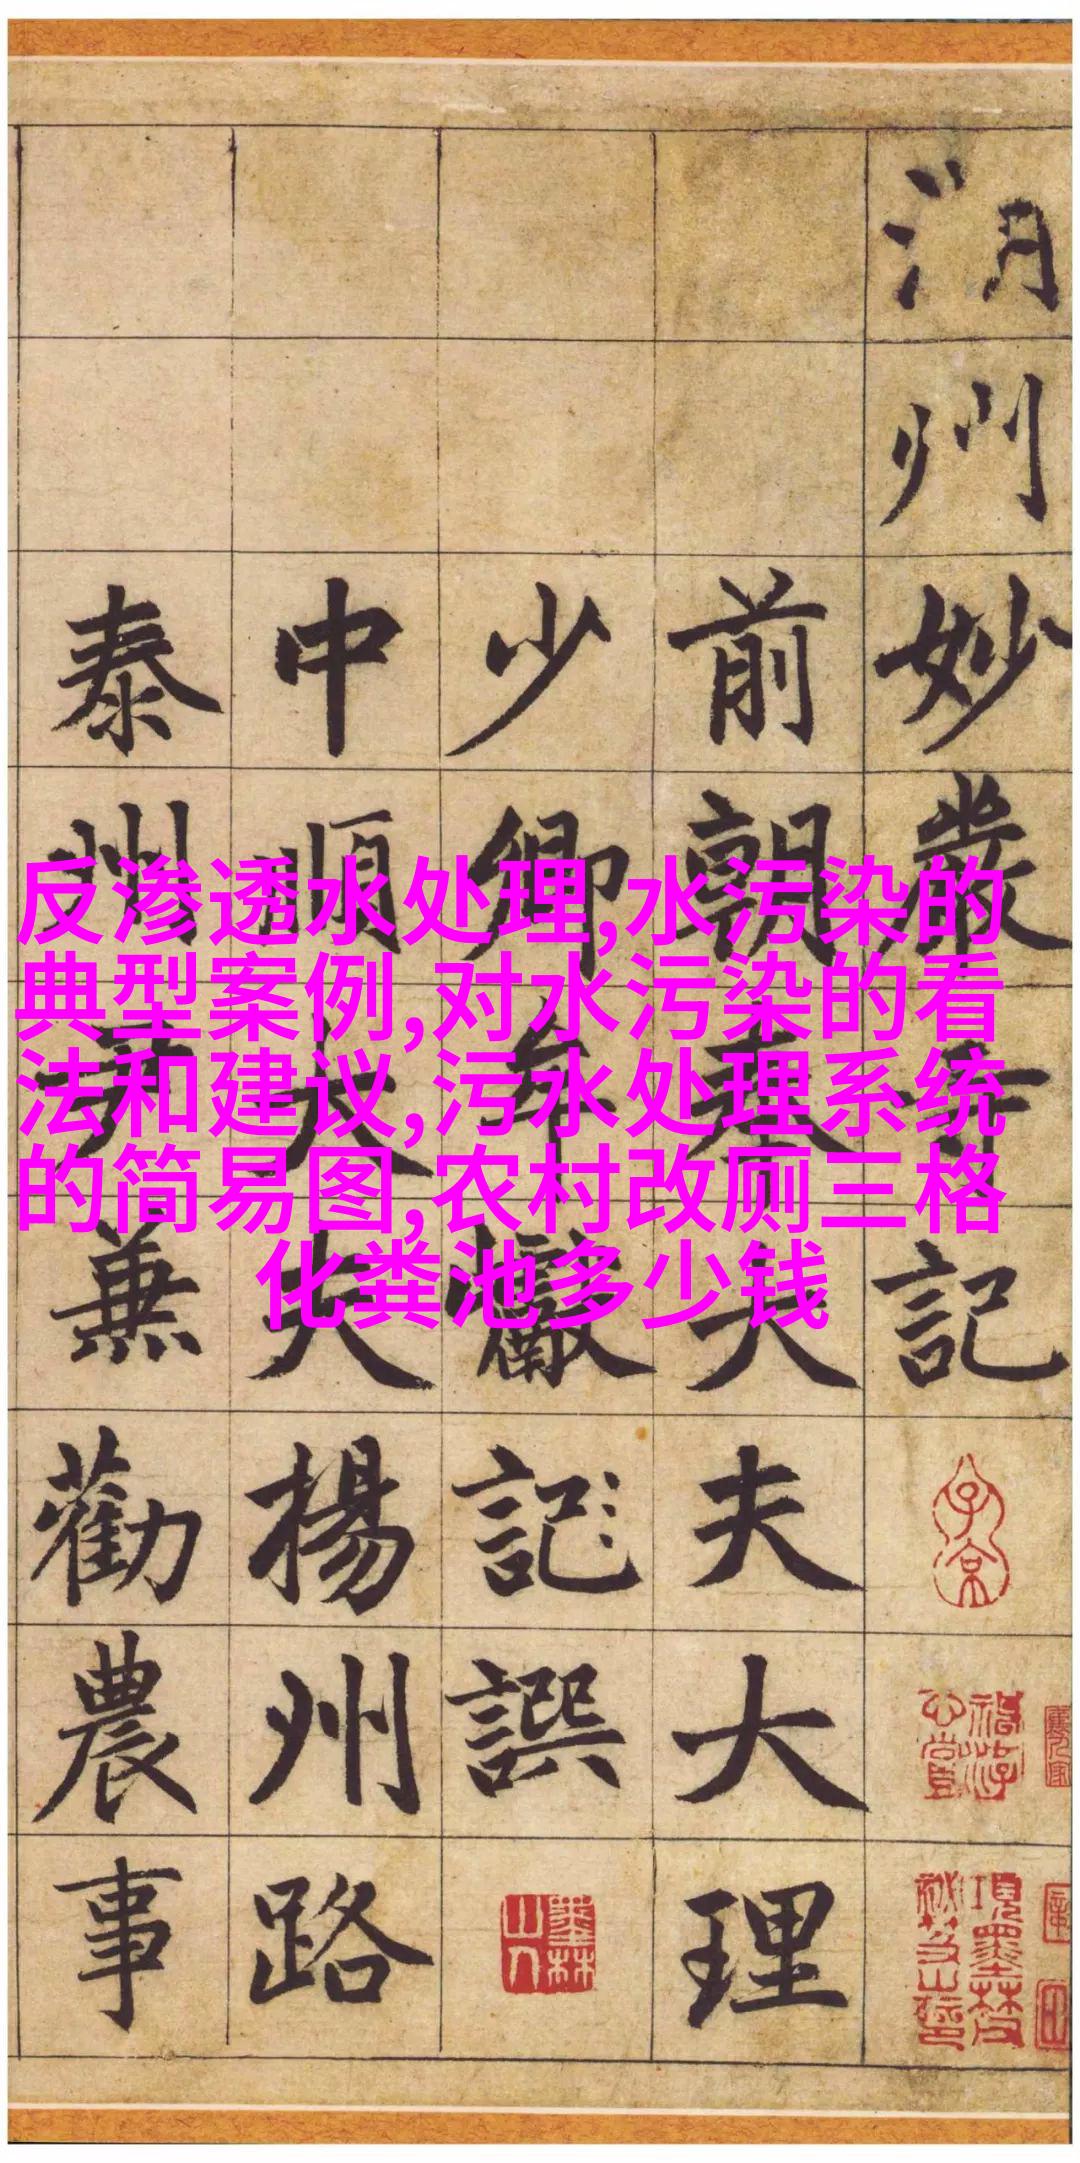 州妙嚴寺記
前朝奉大夫大理
少卿牟巘記譔
中順大夫揚州路
泰州尹兼勸農事
子京
墨林山人
反渗透水处理,水污染的
典型案例,对水污染的看
法和建议,污水处理系统
的简易图,农村改厕三格
化粪池多少钱